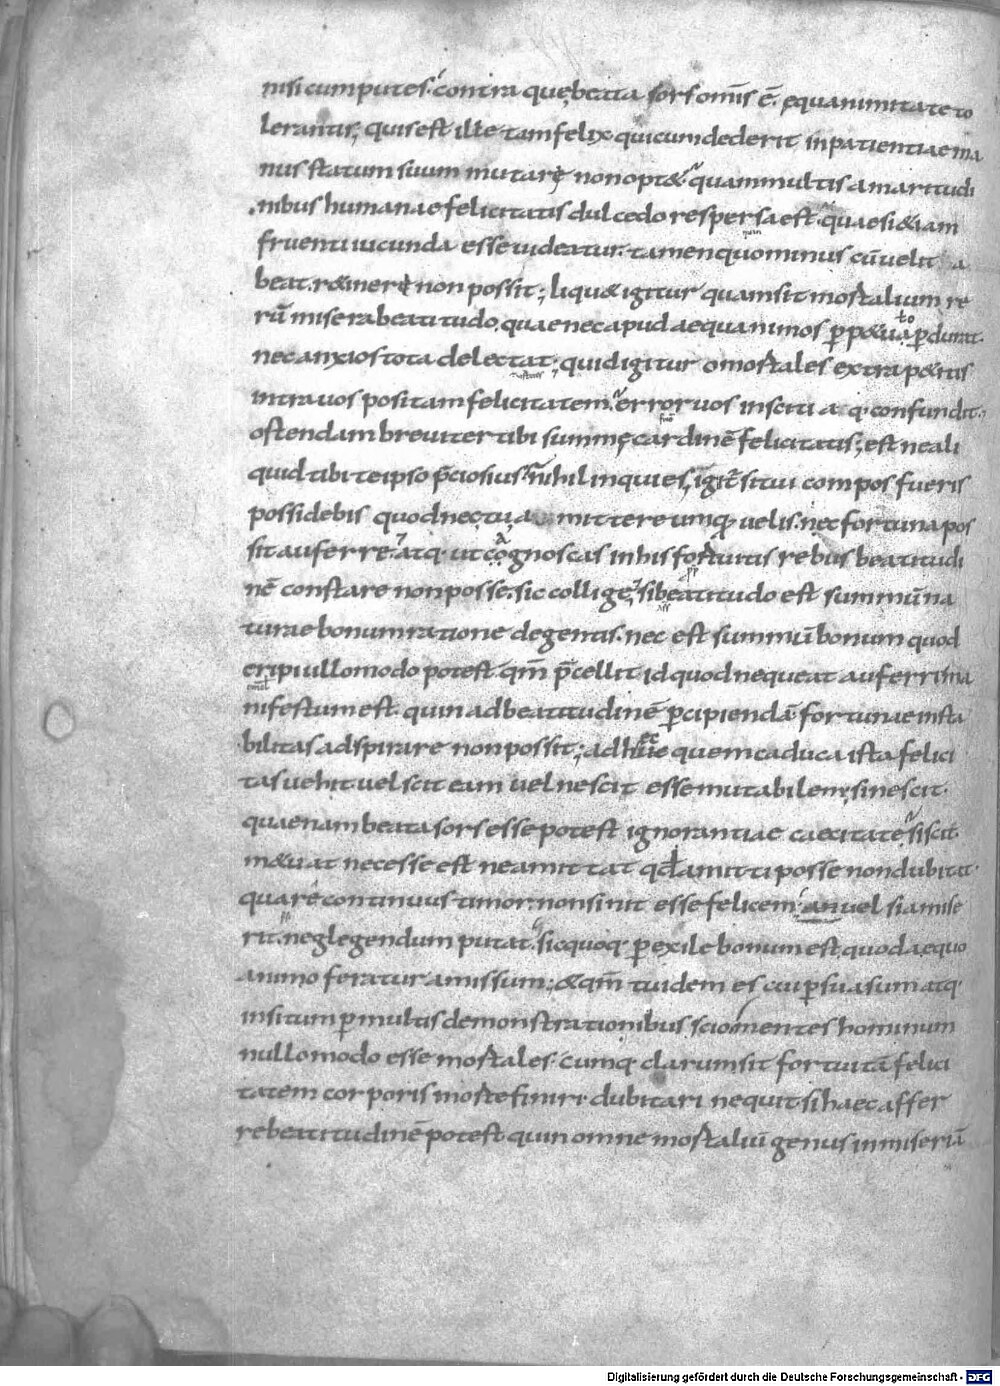 nisi cum putes. contra quę beata sors omīs ē. ęquanimitate to
lerantis; quis est ille tam felix qui cum dederit inpatientiae ma
nus statum suum mutare non opt&. quam multis amaritudi
nibus humanae felicitatis dulcedo respersa est. quae si &iam
fruenti iucunda esse uideatur. tamen quominus cū uelit a
beat. r&ineri non possit; liqu& igitur quam sit mortalium re
rū misera beatitudo. quae nec apud aequanimos ꝑp&ua ꝑdurat.
nec anxios tota delectat; quid igitur o mortales extra p&itis
intra uos positam felicitatem. error uos inscitiaq· confundit.
ostendam breuiter tibi summę cardinē felicitatis; est ne ali
quid tibi te ipso p̄ciosius. nihil inquies, igit̄ si tui compos fueris
possidebis quod nec tu amittere umq̄ uelis. nec fortuna pos
sit auferre. atq· ut cognoscas in his fortuitis rebus beatitudi
nē constare non posse. sic collige, si beatitudo est summū na
turae bonum ratione degentis. nec est summū bonum quod
eripi ullo modo potest qm̄ p̄cellit id quod nequeat auferri ma
nifestum est. quin ad beatitudinē ꝑcipiendā fortunae insta
bilitas adspirare non possit; ad huic quem caduca ista felici
tas uehit uel scit eam uel nescit esse mutabilem, si nescit.
quaenam beata sors esse potest ignorantiae caecitate, si scit.
m&uat necesse est ne amittat qđ amitti posse non dubitat.
quare continuus timor non sinit esse felicem. an uel si amise
rit. neglegendum putat. sic quoq· ꝑexile bonum est quod aequo
animo feratur amissum; & qm̄ tu idem es cui ꝑsuasum atq·
insitum ꝑmultis demonstrationibus scio mentes hominum
nullo modo esse mortales. cumq· clarum sit fortuitā felici
tatem corporis morte finiri. dubitari nequit si haec affer
re beatitudinē potest quin omne mortaliū genus in miseriā